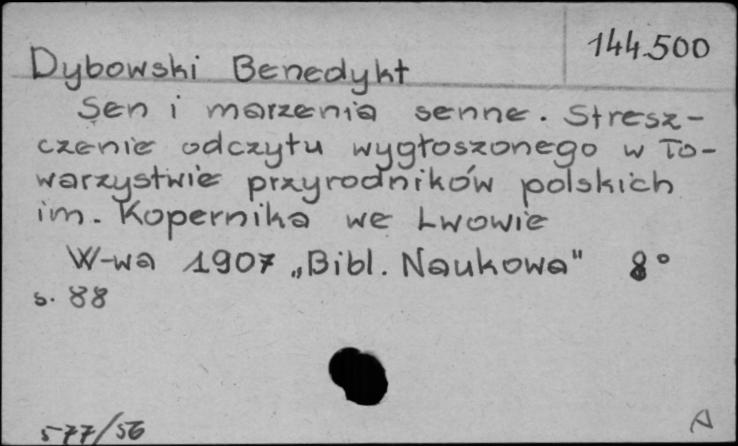 144.500
Dybowski Benedykt
Sen i marzenia senne. Stresz-
czenie odczytu wygłoszonego w To-
warzystwie przyrodników polskich
im. Kopernika we Lwowie
W-wa 1907 „Bibl. Naukowa" 8°
s. 88
577/56
A